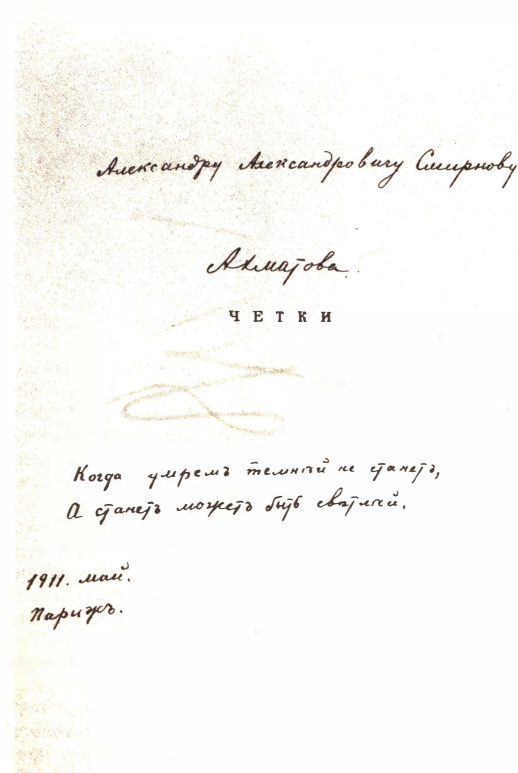 Александру Александровичу Смирнову
Ахматова.
ЧЕТКИ
Когда умремъ темнѣй не станетъ,
А станетъ можетъ быть свѣтлѣй.
1911. май.
Парижъ.